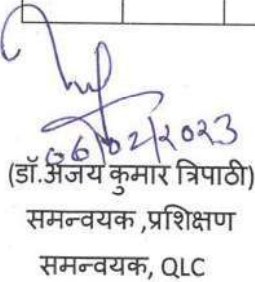 06/02/2023
(डॉ.अजय कुमार त्रिपाठी)
समन्वयक ,प्रशिक्षण
समन्वयक, QLC